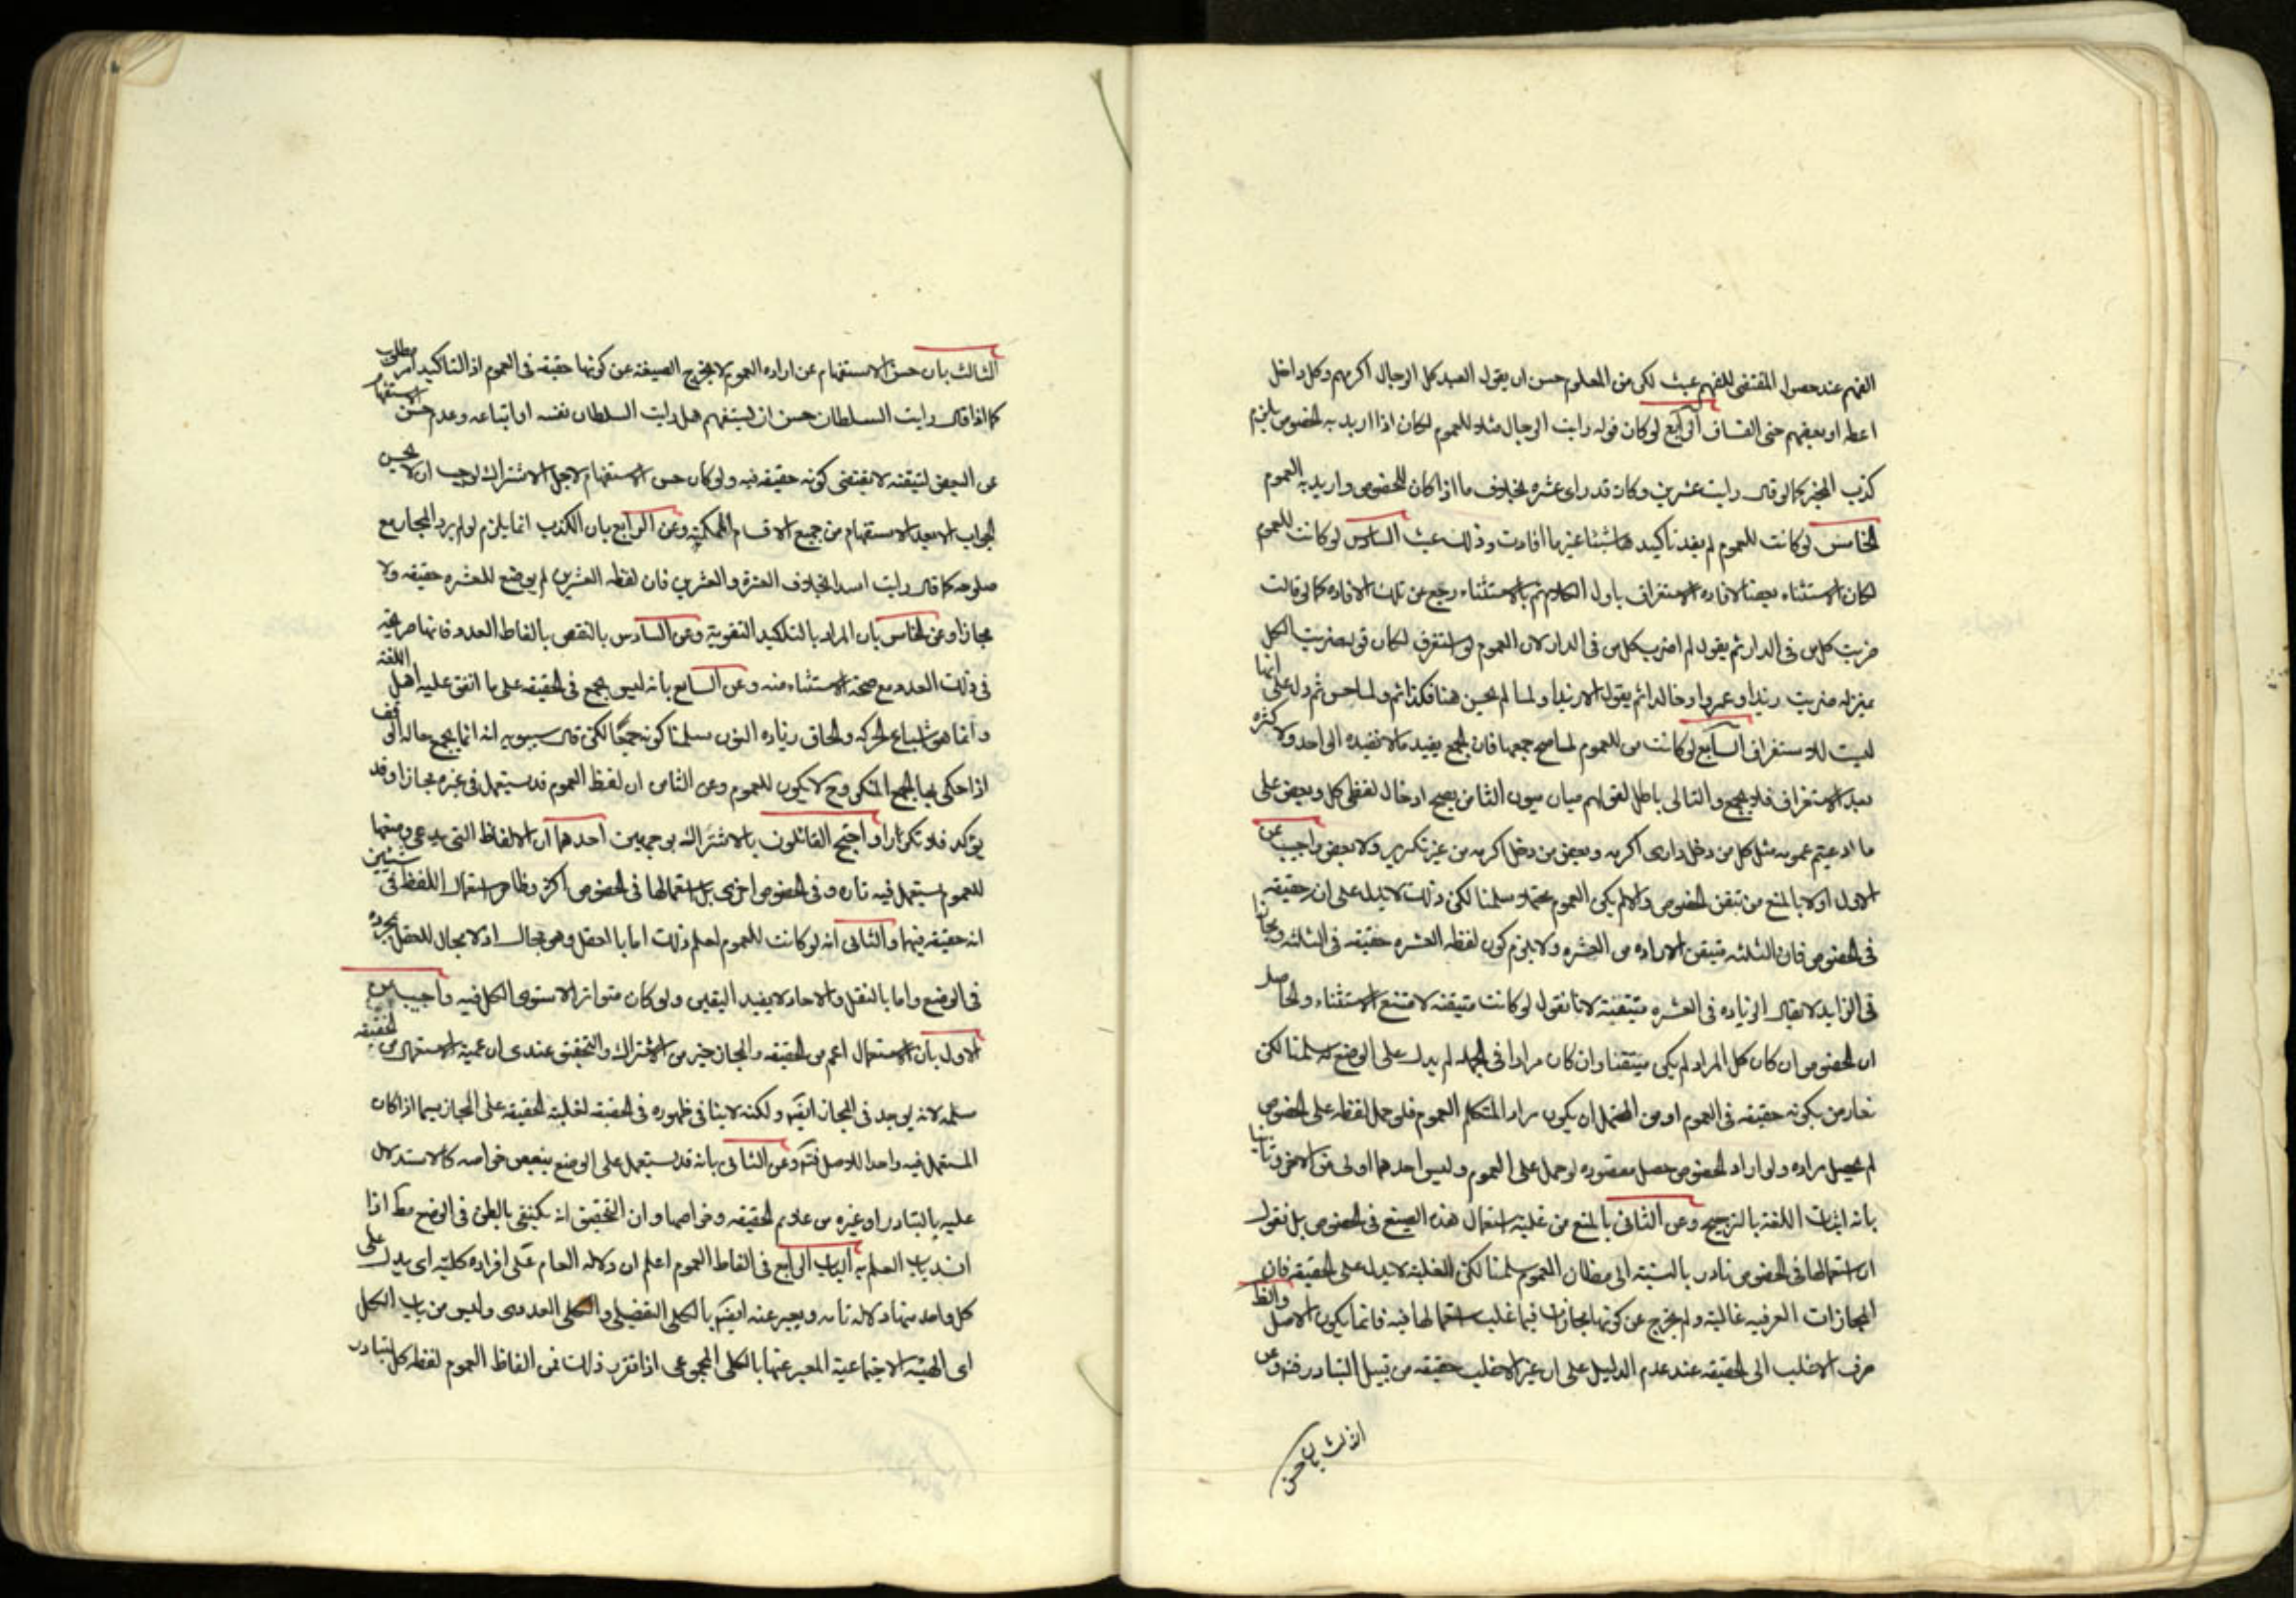 الفهم عند حصول المقتضى للفهم عبث لكن من المعلوم حسن ان يقول العبد كل الرجال اكرمهم وكل داخل
اعطه او بعضهم حتى الفساق الرابع لو كان قوله رايت الرجال مثلا للعموم لكان اذا اريد به الخصوص يلزم
كذب المخبر كما لو قال رايت عشرين وكان قد راى عشره بخلاف ما اذا كان للخصوص واريد به العموم
الخامس لو كانت للعموم لم يفد تاكيدها شيئا غير ما افادت وذلك عبث السادس لو كانت للعموم
لكان الاستثناء نقضا لافاده الاستغراق باول الكلام ثم بالاستثناء رجع عن تلك الافاده كما لو قالت
ضربت كل من في الدار ثم يقول لم اضرب كل من في الدار لان العموم لو استغرق لكان قوله ضربت الكل
بمنزله ضربت زيدا وعمروا وخالدا ثم يقول الا زيدا ولما لم يحسن هنا فكذا ثم ولما حسن ثم دل على انها
ليست للاستغراق السابع لو كانت من للعموم لما صح جمعها فان الجمع يفيد ما لا تفيده الواحد ولا كثره
بعد الاستغراق فلا يجمع والتالى باطل لقولهم ميان ميون الثامن يصح ادخال لفظى كل وبعض على
ما ادعيتم عمومه مثل كل من دخل دارى اكرمه وبعض من دخل اكرمه من غير تكرير ولا بعض واجيب عن
الاول اولا بالمنع من تيقن الخصوص والا لم يكن العموم محتملا سلمنا لكن ذلك لا يدل على انه حقيقه
في الخصوص فان الثلثه متيقن الاراده من العشره ولا يلزم كون لفظه العشره حقيقه في الثلثه ومجازا
في الزايد لا يقال الزياده في العشره متيقنة لانا نقول لو كانت متيقنه لامتنع الاستثناء والحاصل
ان الخصوص ان كان كل المراد لم يكن متيقنا وان كان مرادا في الجمله لم يدل على الوضع له سلمنا لكن
نعارض بكونه حقيقه في العموم او من المحتمل ان يكون مراد المتكلم العموم فلو حمل لفظه على الخصوص
لم يحصل مراده ولو اراد الخصوص حصل مقصوده لو حمل على العموم وليس احدهما اولى من الاخر وثانيا
بانه اثبات اللغة بالترجيح وعن الثانى بالمنع من غلبة استعمال هذه الصيغ في الخصوص بل نقول
ان استعمالها في الخصوص نادر بالنسبة الى مظان العموم سلمنا لكن الغلبة لا تدل على الحقيقه فان
المجازات العرفيه غالبة ولم يخرج عن كونها مجازات فيما غلب استعمالها فيه فانما يكون الاصل والظ
صرف الاغلب الى الحقيقه عند عدم الدليل على ان غير الاغلب حقيقه من قبيل التبادر فتم وعن
الثالث بان حسن
الثالث بان حسن الاستفهام عن اراده العموم لا يخرج الصيغة عن كونها حقيقه في العموم اذ التاكيد امر مطلوب
كما اذا قال رايت السلطان حسن ان يستفهم هل رايت السلطان نفسه او اتباعه وعدم حسن الاستفهام
عن البعض لتيقنه لا يقتضى كونه حقيقه فيه ولو كان حسن الاستفهام لاجل الاشتراك لوجب ان لا يحسن
الجواب الا بعد الاستفهام من جميع الاقسام الممكنه وعن الرابع بان الكذب انما يلزم لو لم يرد المجاز مع
صلوحه كما قال رايت اسدا بخلاف العشرة والعشرين فان لفظه العشرين لم يوضع للعشره حقيقه ولا
مجازا وعن الخامس بان المراد بالتاكيد التقوية وعن السادس بالنقض بالفاظ العدد فانها صريحه
في ذلك العدد مع صحة الاستثناء منه وعن السابع بانه ليس بجمع في الحقيقه على ما اتفق عليه اهل اللغة
وانما هو اشباع الحركه والحاق زياده النون سلمنا كونه جمعا لكن قال سيبويه انه انما يجمع حاله الوقف
اذا حكى بها الجمع المنكر وح لا يكون للعموم وعن الثامن ان لفظ العموم قد يستعمل في غيره مجازا وقد
يؤكد فلا تكرارا واحتج القائلون بالاشتراك بوجهين احدهما ان الالفاظ التى يدعى وضعها
للعموم يستعمل فيه تاره وفي الخصوص اخرى بل استعمالها في الخصوص اكثر وظاهر استعمال اللفظ في شيئين
انه حقيقه فيهما والثانى انه لو كانت للعموم لعلم ذلك اما بالعقل وهو محال اذ لا مجال للعقل بمجرده
في الوضع واما بالنقل والاحاد لا يفيد اليقين ولو كان متواترا لاستوى الكل فيه واجيب عن
الاول بان الاستعمال اعم من الحقيقه والمجاز خير من الاشتراك والتحقيق عندى ان عمية الاستعمال من الحقيقه
مسلمه لانه يوجد في المجاز ايضا ولكنه لا ينافى ظهوره في الحقيقه لغلبة الحقيقه على المجاز سيما اذا كان
المستعمل فيه واحدا للاصل فتم وعن الثانى بانه قد يستعمل على الوضع ببعض خواصه كالاستدلال
عليه بالتبادر او غيره من علايم الحقيقه وخواصها وان التحقيق انه يكتفى بالظن في الوضع مط اذا
انسد باب العلم به الباب الرابع في الفاظ العموم اعلم ان دلاله العام على افراده كلية اى يدل على
كل واحد منها دلاله تامه ويعبر عنه ايضا بالكلى التفضيلى والكلى العددى وليس من باب الكل
اى الهيئه الاجتماعية المعبر عنها بالكلى المجموعى اذا تقرر ذلك فمن الفاظ العموم لفظه كل لتبادر